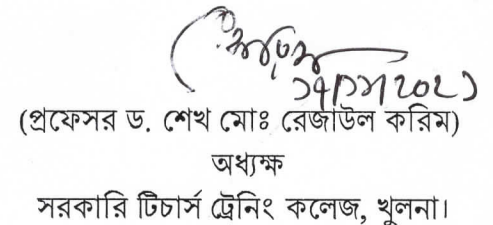 (প্রফেসর ড. শেখ মোঃ রেজাউল করিম)
অধ্যক্ষ
সরকারি টিচার্স ট্রেনিং কলেজ, খুলনা।